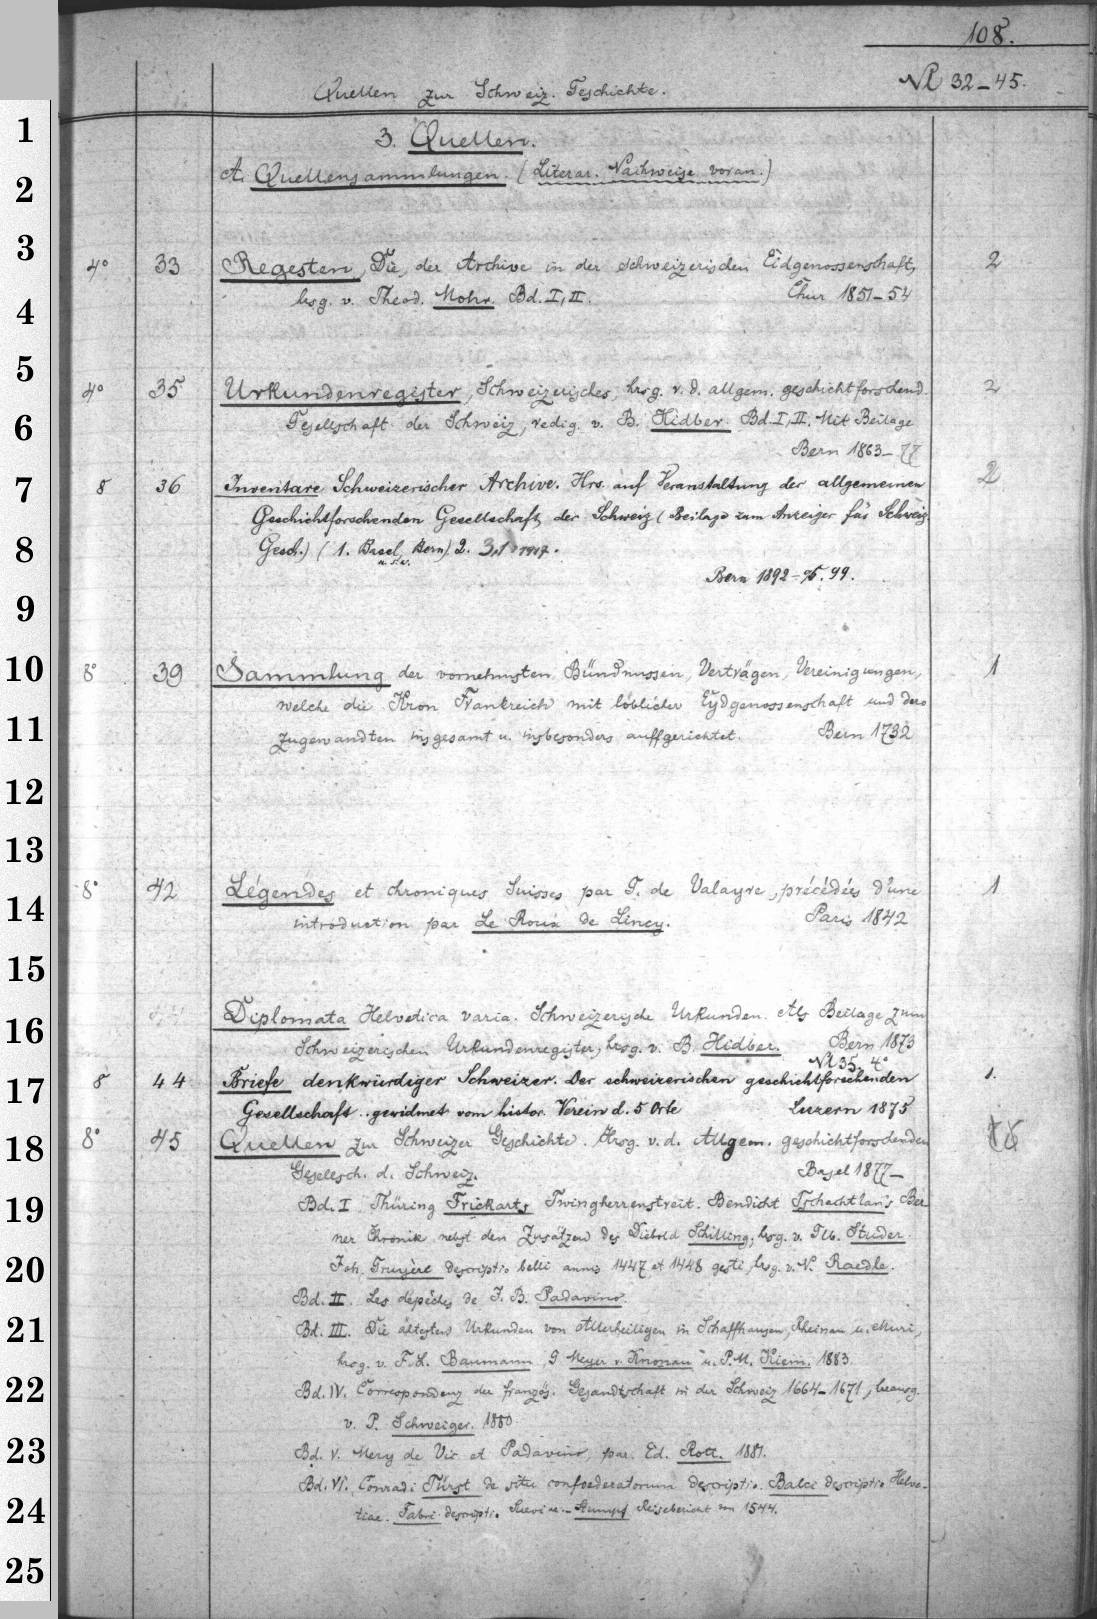 108.
Quellen zur Schweiz. Geschichte.
№ 32-45.
1
3. Quellen.
2
A. Quellensammlungen. (Literar. Nachweise voran.)
3
4° 33 Regesten, Die, der Archive in der schweizerischen Eidgenossenschaft, 2
hrsg. v. Theod. Mohr. Bd. I, II. Chur 1851-54
4
5
4° 35 Urkundenregister, Schweizerisches, hrsg. v. d. allgem. geschichtforschend. 2
6
Gesellschaft der Schweiz, redig. v. B. Hidber. Bd. I, II. Mit Beilage
Bern 1863-77
7
8 36 Inventare Schweizerischer Archive. Hrs. auf Veranstaltung der allgemeinen 2
Geschichtforschenden Gesellschaft der Schweiz (Beilage zum Anzeiger für Schweiz.
8
Gesch.) (1. Basel, Bern) 2. 3,1 1917.
u. s. w.
Bern 1892-95. 99.
9
10
8° 39 Sammlung der vornehmsten Bündnussen, Verträgen, Vereinigungen, 1
welche die Kron Frankreich mit löblicher Eydgenossenschaft und dero
11
zugewandten insgesamt u. insbesonders auffgerichtet. Bern 1732
12
13
8° 42 Légendes et chroniques suisses par G. de Valayre, précédées d'une 1
14
introduction par Le Roux de Lincy. Paris 1842
15
16
Diplomata Helvetica varia. Schweizerische Urkunden. Als Beilage zum
Schweizerischen Urkundenregister, hrsg. v. B. Hidber. Bern 1873
№ 35. 4°
17
8 44 Briefe denkwürdiger Schweizer. Der schweizerischen geschichtforschenden 1.
Gesellschaft .. gewidmet vom histor. Verein d. 5 Orte Luzern 1875
18
8° 45 Quellen zur Schweizer Geschichte. Hrsg. v. d. Allgem. geschichtforschenden
Gesellsch. d. Schweiz. Basel 1877-
19
Bd. I. Thüring Frickarts Twingherrenstreit. Bendicht Tschachtlans Ber
ner Chronik nebst den Zusätzen des Diebold Schilling, hrsg. v. Glb. Studer.
20
Joh. Gruyère descriptio belli annis 1447 et 1448 gesti, hrsg. v. N. Raedle.
Bd. II. Les dépêches de J. B. Padavino.
21
Bd. III. Die ältesten Urkunden von Allerheiligen in Schaffhausen, Rheinau u. Muri,
hrsg. v. F. L. Baumann, G Meyer v. Knonau u. P. M. Kiem. 1883
22
Bd. IV. Correspondenz der französ. Gesandtschaft in der Schweiz 1664-1671, herausg.
v. P. Schweizer. 1880
23
Bd. V. Mery de Vic et Padavino, par Ed. Rott. 1881.
Bd. VI. Conradi Türst de situ confoederatorum descriptio. Balci descriptio Helve-
24
tiae. Fabri descriptio Sueviae. - Stumpf Reisebericht von 1544.
25